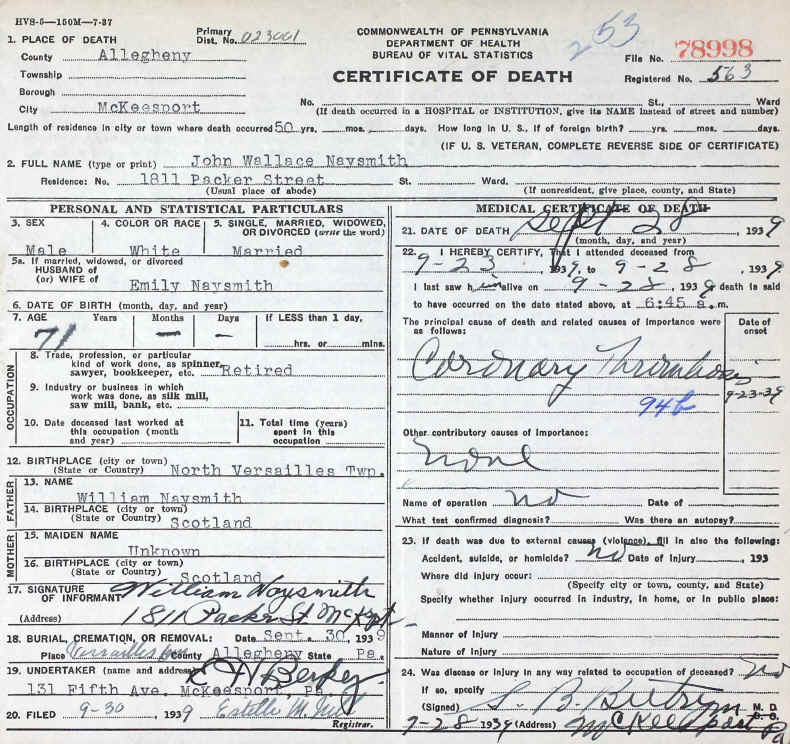 HVS-5—150M—7-37
COMMONWEALTH OF PENNSYLVANIA
DEPARTMENT OF HEALTH
BUREAU OF VITAL STATISTICS
CERTIFICATE OF DEATH
253
File No. 78998
Registered No. 563
1. PLACE OF DEATH
Primary Dist. No. 023001
County Allegheny
Township
Borough
City McKeesport
No. St., Ward
(If death occurred in a HOSPITAL or INSTITUTION, give its NAME instead of street and number)
Length of residence in city or town where death occurred 50 yrs. mos. days. How long in U. S., if of foreign birth? yrs. mos. days.
(IF U. S. VETERAN, COMPLETE REVERSE SIDE OF CERTIFICATE)
2. FULL NAME (type or print) John Wallace Naysmith
Residence: No. 1811 Packer Street St. Ward.
(Usual place of abode) (If nonresident, give place, county, and State)
PERSONAL AND STATISTICAL PARTICULARS
3. SEX
Male
4. COLOR OR RACE
White
5. SINGLE, MARRIED, WIDOWED, OR DIVORCED (write the word)
Married
5a. If married, widowed, or divorced
HUSBAND of
(or) WIFE of Emily Naysmith
6. DATE OF BIRTH (month, day, and year)
7. AGE Years Months Days If LESS than 1 day,
71 — — hrs. or mins.
OCCUPATION
8. Trade, profession, or particular kind of work done, as spinner, sawyer, bookkeeper, etc. Retired
9. Industry or business in which work was done, as silk mill, saw mill, bank, etc.
10. Date deceased last worked at this occupation (month and year)
11. Total time (years) spent in this occupation
12. BIRTHPLACE (city or town)
(State or Country) North Versailles Twp.
FATHER
13. NAME
William Naysmith
14. BIRTHPLACE (city or town)
(State or Country) Scotland
MOTHER
15. MAIDEN NAME
Unknown
16. BIRTHPLACE (city or town)
(State or Country) Scotland
17. SIGNATURE OF INFORMANT William Naysmith
(Address) 1811 Packer St McKpt
18. BURIAL, CREMATION, OR REMOVAL: Date Sept. 30, 1939
Place Versailles County Allegheny State Pa.
19. UNDERTAKER (name and address) E H Berkey
131 Fifth Ave. McKeesport, Pa.
20. FILED 9-30 1939 Estelle M.
Registrar.
MEDICAL CERTIFICATE OF DEATH
21. DATE OF DEATH Sept 28, 1939
(month, day, and year)
22. I HEREBY CERTIFY, That I attended deceased from
9-23, 1939, to 9-28, 1939
I last saw him alive on 9-28, 1939 death is said
to have occurred on the date stated above, at 6:45 a.m.
The principal cause of death and related causes of importance were as follows:
Date of onset
Coronary Thrombosis
9-23-39
94b
Other contributory causes of importance:
None
Name of operation no Date of
What test confirmed diagnosis? Was there an autopsy?
23. If death was due to external causes (violence), fill in also the following:
Accident, suicide, or homicide? no Date of injury , 193
Where did injury occur:
(Specify city or town, county, and State)
Specify whether injury occurred in industry, in home, or in public place:
Manner of Injury
Nature of Injury
24. Was disease or injury in any way related to occupation of deceased? no
If so, specify
(Signed) S. B. M. D.
9-28 1939 (Address) McKeesport Pa